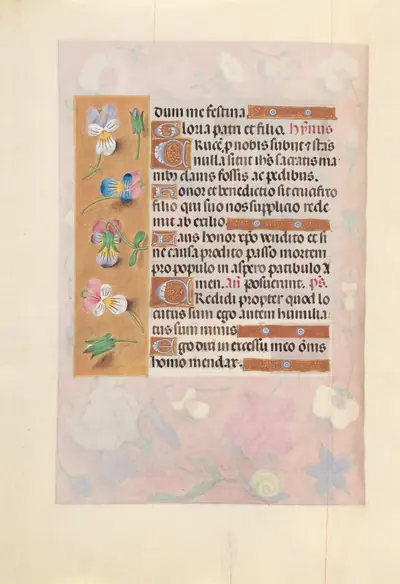 dum me festina.
Gloria patri et filio. Hymnus
Crucē p nobis subiit ⁊ stās
in illa sitiit ihs sacratis ma
nibꝰ clauis fossis ac pedibus.
Honor et benedictio sit crucifixo
filio qui suo nos supplicio rede
mit ab exilio.
Laus honor xpo vendito et si
ne causa prodito passo mortem
pro populo in aspero patibulo A
men. añ posuerunt. ps.
Credidi propter quod lo
cutus sum ego autem humilia
tus sum nimis
Ego dixi in excessu meo oīnis
homo mendax.